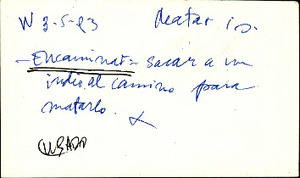 W 3-5-83 Matar is.
-Encaminar= sacar a un
indio al camino para
matarlo. X
USADO